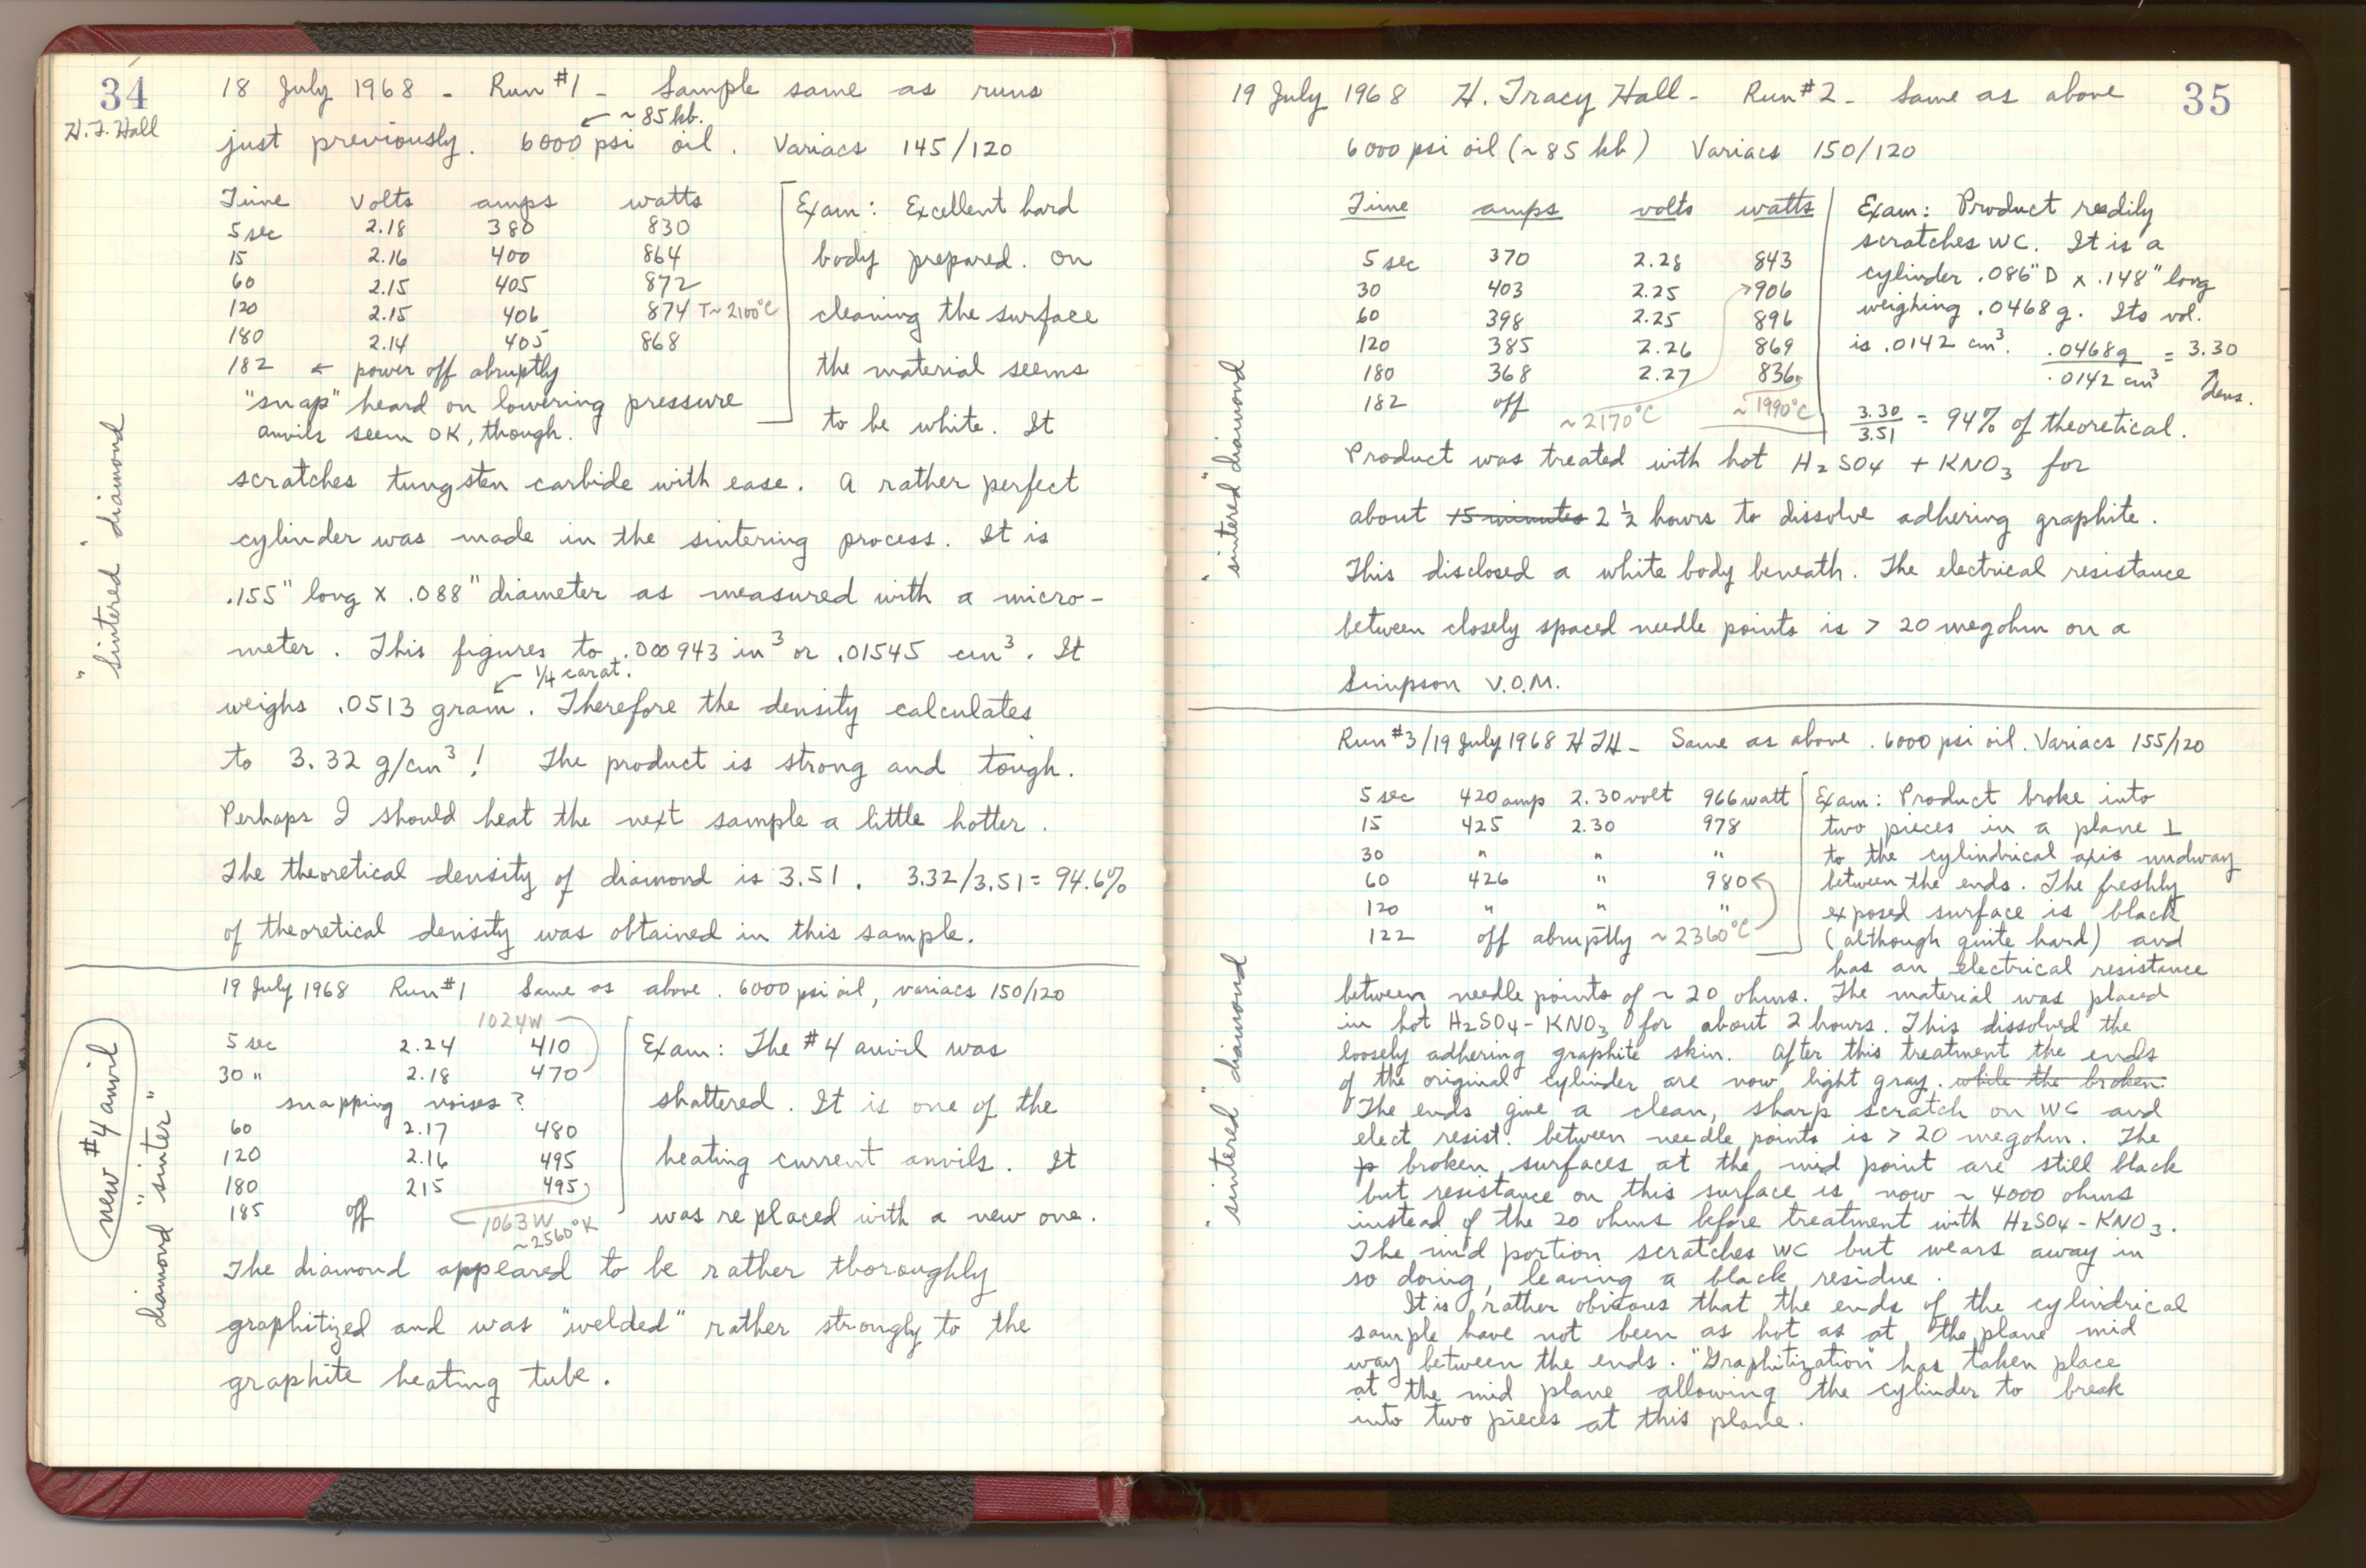 34
H.T. Hall
18 July 1968 - Run #1 - Sample same as runs
← ~85 kb.
just previously. 6000 psi oil. Variacs 145/120
Time Volts amps watts
5 sec 2.18 380 830
15 2.16 400 864
60 2.15 405 872
120 2.15 406 874 T~2100°C
180 2.14 405 868
182 ← power off abruptly
"snap" heard on lowering pressure
anvils seem OK, though.
Exam: Excellent hard
body prepared. On
cleaning the surface
the material seems
to be white. It
scratches tungsten carbide with ease. A rather perfect
cylinder was made in the sintering process. It is
.155" long x .088" diameter as measured with a micro-
meter. This figures to .000943 in³ or .01545 cm³. It
← 1/4 carat.
weighs .0513 gram. Therefore the density calculates
to 3.32 g/cm³! The product is strong and tough.
Perhaps I should heat the next sample a little hotter.
The theoretical density of diamond is 3.51. 3.32/3.51 = 94.6%
of theoretical density was obtained in this sample.
"sintered" diamond
19 July 1968 Run #1 Same as above. 6000 psi oil, variacs 150/120
1024W
5 sec 2.24 410
30 " 2.18 470
snapping noises?
60 2.17 480
120 2.16 495
180 215 495
185 off 1063W
~2560°K
Exam: The #4 anvil was
shattered. It is one of the
heating current anvils. It
was replaced with a new one.
The diamond appeared to be rather thoroughly
graphitized and was "welded" rather strongly to the
graphite heating tube.
new #4 anvil
diamond "sinter"
35
19 July 1968 H. Tracy Hall - Run #2 - Same as above
6000 psi oil (~85 kb) Variacs 150/120
Time amps volts watts
5 sec 370 2.28 843
30 403 2.25 906
60 398 2.25 896
120 385 2.26 869
180 368 2.27 836
182 off ~2170°C ~1990°C
Exam: Product readily
scratches WC. It is a
cylinder .086" D x .148" long
weighing .0468 g. Its vol.
is .0142 cm³. .0468g / .0142 cm³ = 3.30
↑ dens.
3.30 / 3.51 = 94% of theoretical.
Product was treated with hot H₂SO₄ + KNO₃ for
about 15 minutes 2 1/2 hours to dissolve adhering graphite.
This disclosed a white body beneath. The electrical resistance
between closely spaced needle points is > 20 megohm on a
Simpson V.O.M.
"sintered" diamond
Run #3/19 July 1968 HTH - Same as above. 6000 psi oil. Variacs 155/120
5 sec 420 amp 2.30 volt 966 watt
15 425 2.30 978
30 " " "
60 426 " 980
120 " " "
122 off abruptly ~2360°C
Exam: Product broke into
two pieces in a plane ⊥
to the cylindrical axis midway
between the ends. The freshly
exposed surface is black
(although quite hard) and
has an electrical resistance
between needle points of ~ 20 ohms. The material was placed
in hot H₂SO₄-KNO₃ for about 2 hours. This dissolved the
loosely adhering graphite skin. After this treatment the ends
of the original cylinder are now light gray. while the broken
The ends give a clean, sharp scratch on WC and
elect. resist. between needle points is > 20 megohm. The
p broken surfaces at the mid point are still black
but resistance on this surface is now ~ 4000 ohms
instead of the 20 ohms before treatment with H₂SO₄-KNO₃.
The mid portion scratches WC but wears away in
so doing, leaving a black residue.
It is rather obvious that the ends of the cylindrical
sample have not been as hot as at the plane mid
way between the ends. "Graphitization" has taken place
at the mid plane allowing the cylinder to break
into two pieces at this plane.
"sintered" diamond